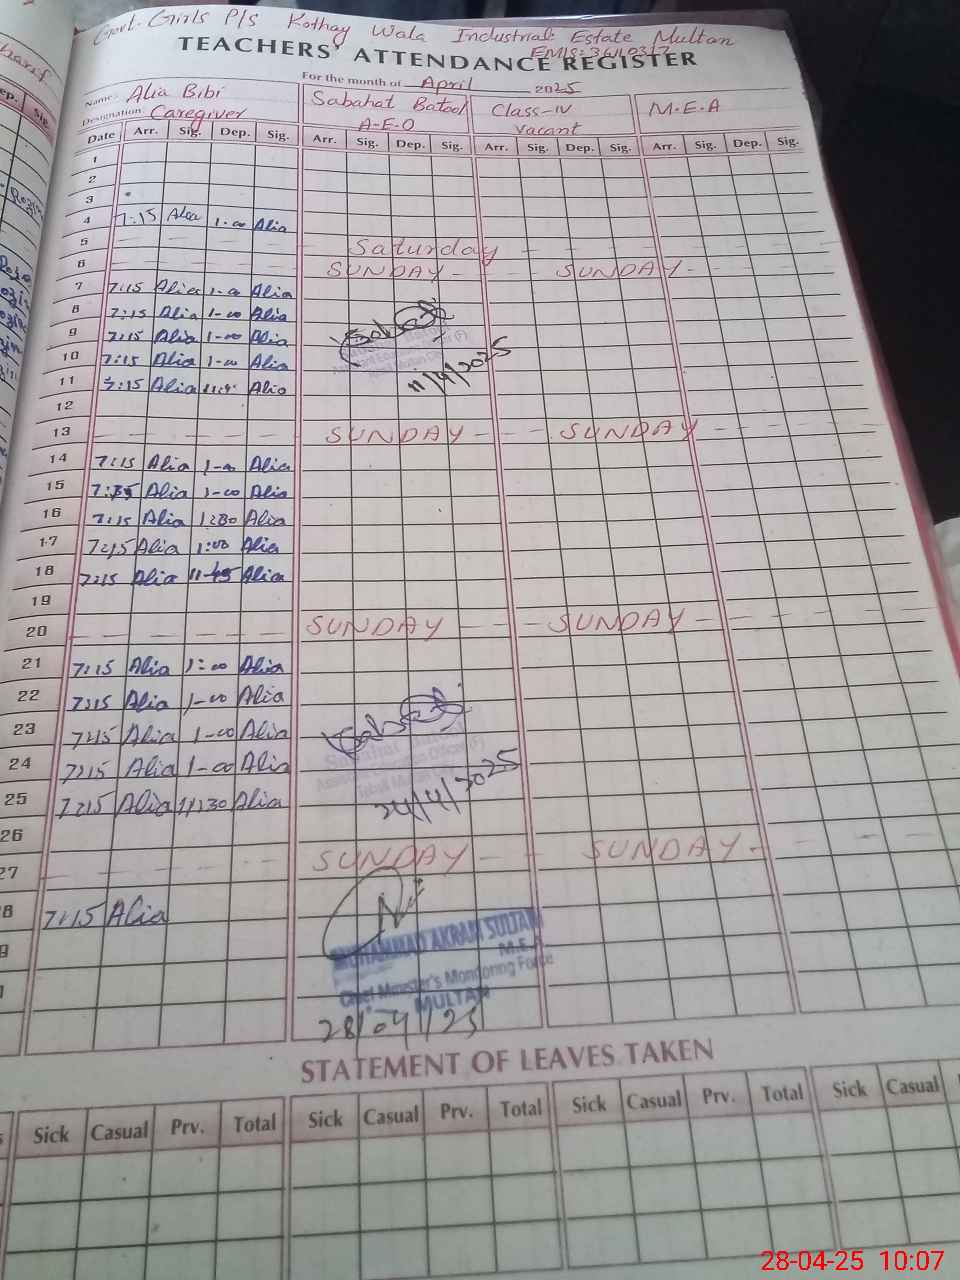 Govt. Girls P/S Kothay Wala Industrial Estate Multan
TEACHERS' ATTENDANCE REGISTER
For the month of April 2025
Name: Alia Bibi Sabahat Batool Class-IV M.E.A
Designation: Caregiver A-E-O Vacant
Date Arr. Sig. Dep. Sig. Arr. Sig. Dep. Sig. Arr. Sig. Dep. Sig. Arr. Sig. Dep. Sig.
1
2
3
4 7:15 Alia 1-00 Alia
5 Saturday
6 SUNDAY SUNDAY
7 7:15 Alia 1-00 Alia
8 7:15 Alia 1-00 Alia
9 7:15 Alia 1-00 Alia
10 7:15 Alia 1-00 Alia
11 7:15 Alia Alia 11/4/2025
12
13 SUNDAY SUNDAY
14 7:15 Alia 1-00 Alia
15 Alia 1-00 Alia
16 7:15 Alia Alia
17 7:15 Alia 1:00 Alia
18 7:15 Alia 11-45 Alia
19
20 SUNDAY SUNDAY
21 7:15 Alia 1:00 Alia
22 7:15 Alia 1-00 Alia
23 7:15 Alia 1-00 Alia
24 7:15 Alia 1-00 Alia
25 7:15 Alia 11:30 Alia 24/4/2025
26
27 SUNDAY SUNDAY
8 7:15 Alia
MUHAMMAD AKRAM SULTAN
M.E.A
Chief Minister's Monitoring Force
MULTAN
28/04/25
STATEMENT OF LEAVES TAKEN
Sick Casual Prv. Total Sick Casual Prv. Total Sick Casual Prv. Total Sick Casual
28-04-25 10:07